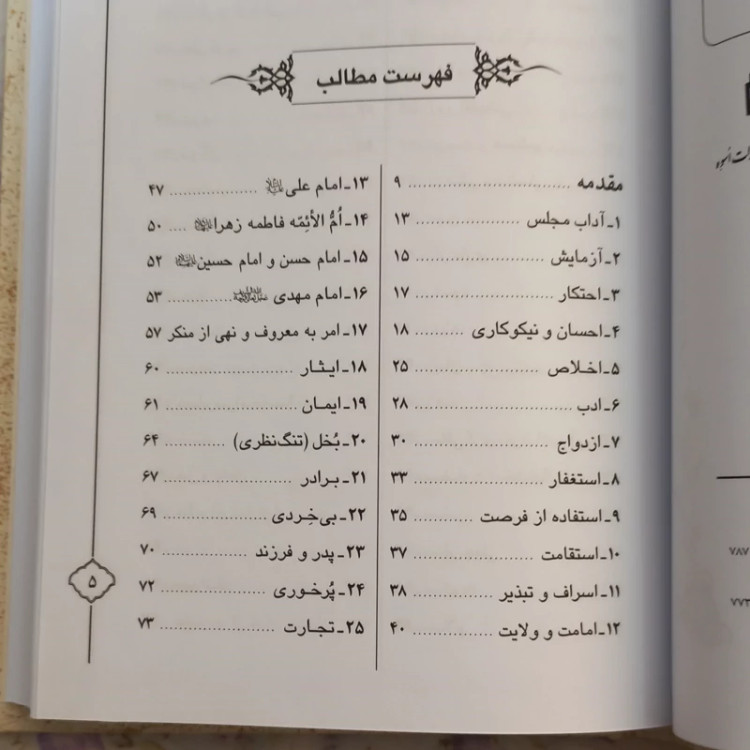 فهرست مطالب
مقدمه ........ ۹
۱ـ آداب مجلس ........ ۱۳
۲ـ آزمایش ........ ۱۵
۳ـ احتکار ........ ۱۷
۴ـ احسان و نیکوکاری ........ ۱۸
۵ـ اخلاص ........ ۲۵
۶ـ ادب ........ ۲۸
۷ـ ازدواج ........ ۳۰
۸ـ استغفار ........ ۳۳
۹ـ استفاده از فرصت ........ ۳۵
۱۰ـ استقامت ........ ۳۷
۱۱ـ اسراف و تبذیر ........ ۳۸
۱۲ـ امامت و ولایت ........ ۴۰
۱۳ـ امام علی ........ ۴۷
۱۴ـ اُمُّ الأئِمّه فاطمه زهرا .... ۵۰
۱۵ـ امام حسن و امام حسین ۵۲
۱۶ـ امام مهدی ........ ۵۳
۱۷ـ امر به معروف و نهی از منکر ۵۷
۱۸ـ ایثار ........ ۶۰
۱۹ـ ایمان ........ ۶۱
۲۰ـ بُخل (تنگ‌نظری) ........ ۶۴
۲۱ـ برادر ........ ۶۷
۲۲ـ بی‌خِردی ........ ۶۹
۲۳ـ پدر و فرزند ........ ۷۰
۲۴ـ پُرخوری ........ ۷۲
۲۵ـ تجارت ........ ۷۳
۵
۷۸۷
۷۷۳